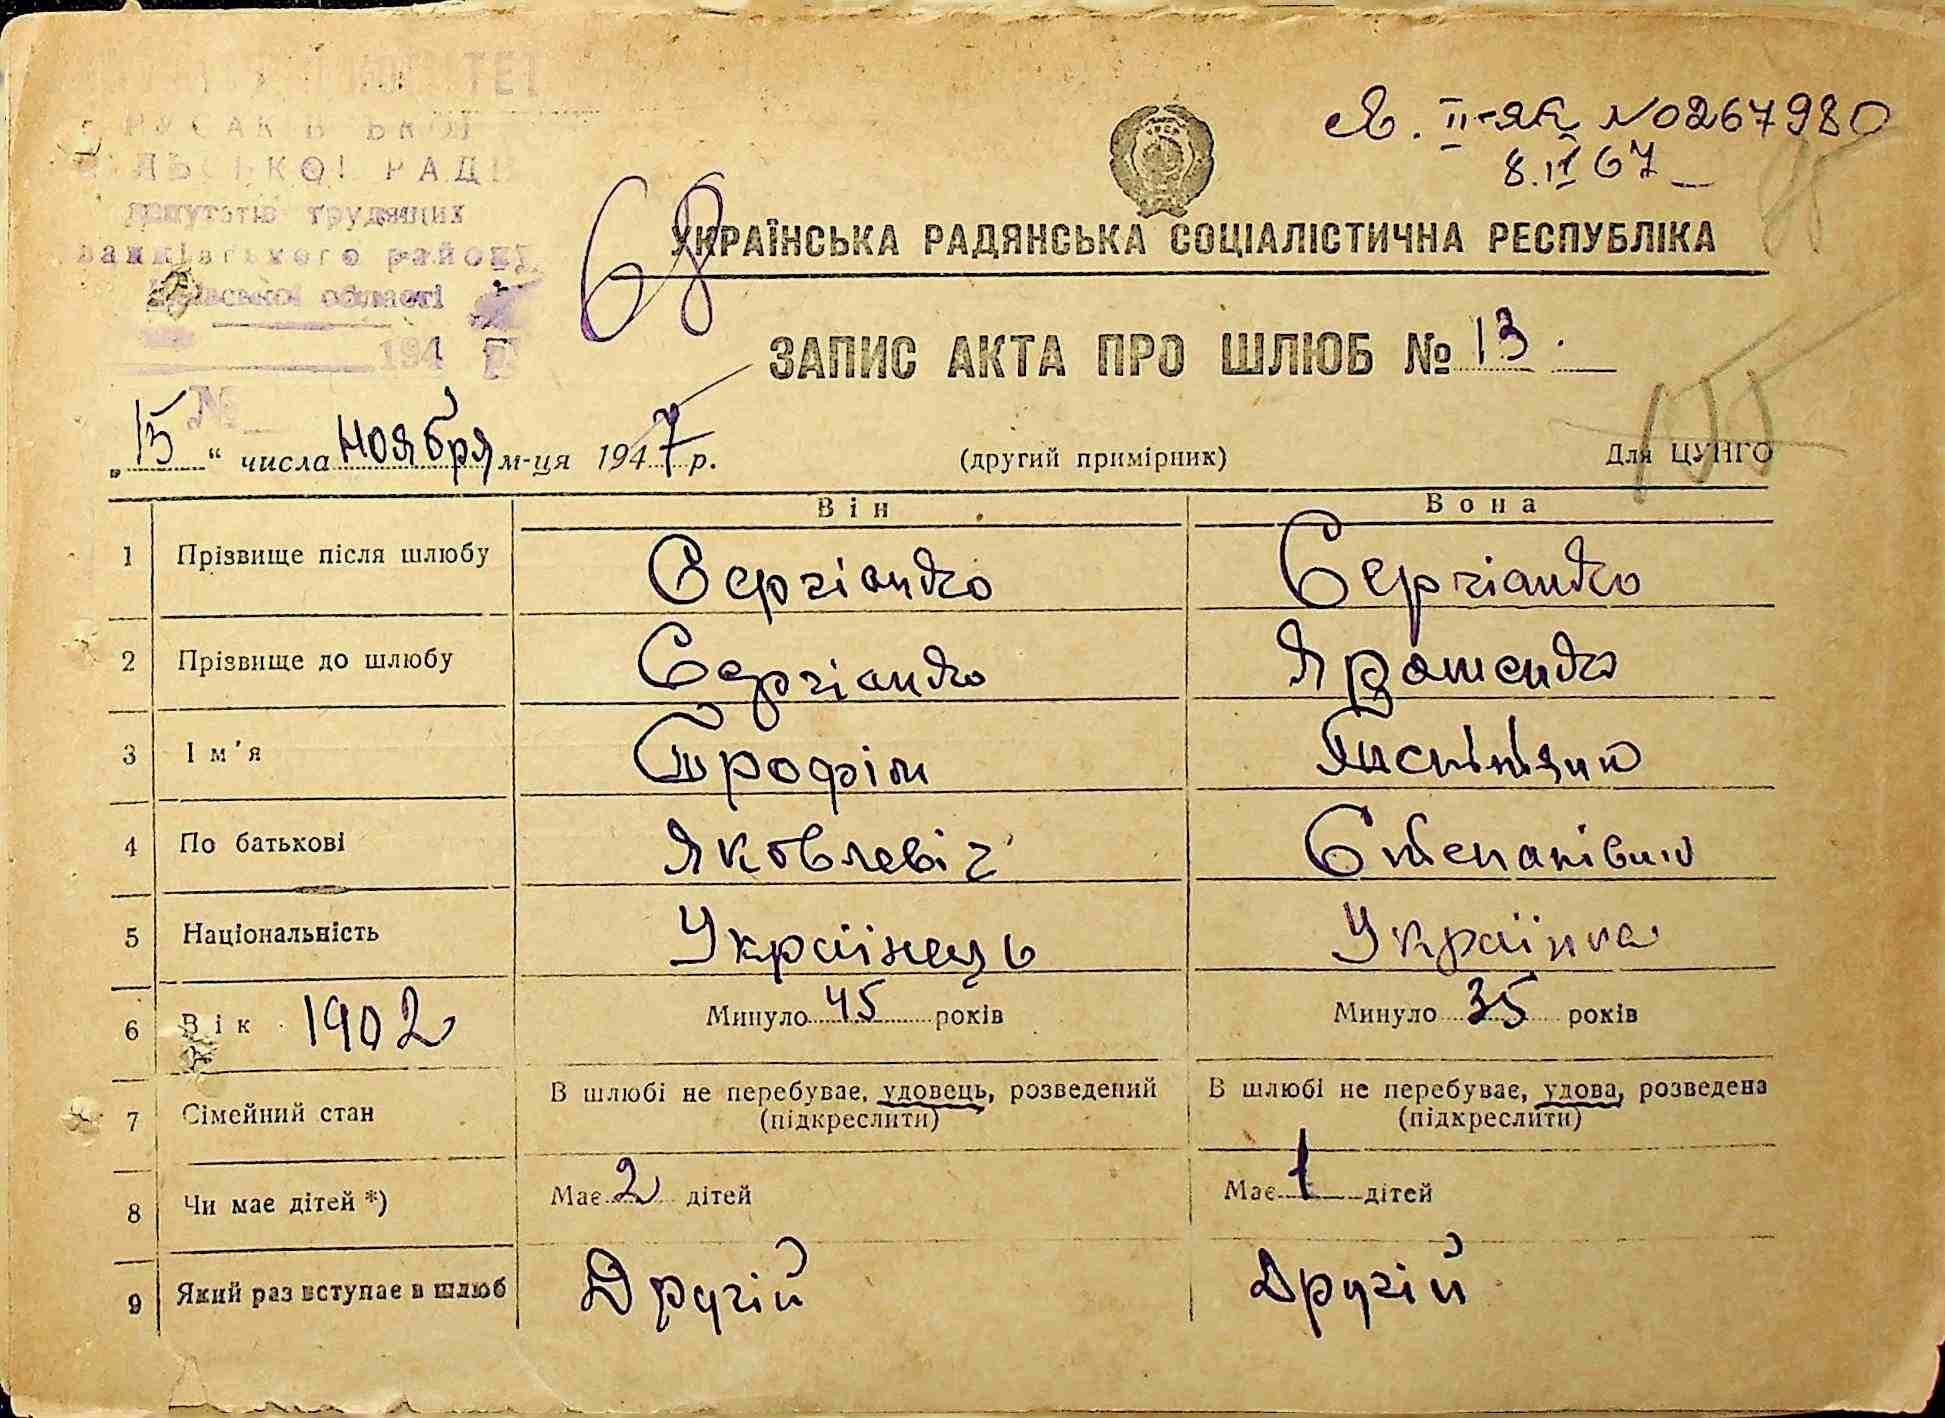 СІЛЬСЬКОЇ РАДИ
депутатів трудящих
району
області
194
№
II-ЯК №0267980
8.II 67
68
УКРАЇНСЬКА РАДЯНСЬКА СОЦІАЛІСТИЧНА РЕСПУБЛІКА
ЗАПИС АКТА ПРО ШЛЮБ № 13.
„15“ числа ноября м-ця 1947 р. (другий примірник) Для ЦУНГО
Він Вона
1 Прізвище після шлюбу Сергіанко Сергіанко
2 Прізвище до шлюбу Сергіанко Ярошенко
3 Ім'я Трофім
4 По батькові Яковлевіч Степанівна
5 Національність Українець Українка
6 Вік 1902 Минуло 45 років Минуло 35 років
7 Сімейний стан В шлюбі не перебуває, удовець, розведений (підкреслити) В шлюбі не перебуває, удова, розведена (підкреслити)
8 Чи має дітей *) Має 2 дітей Має 1 дітей
9 Який раз вступає в шлюб Другій Другій